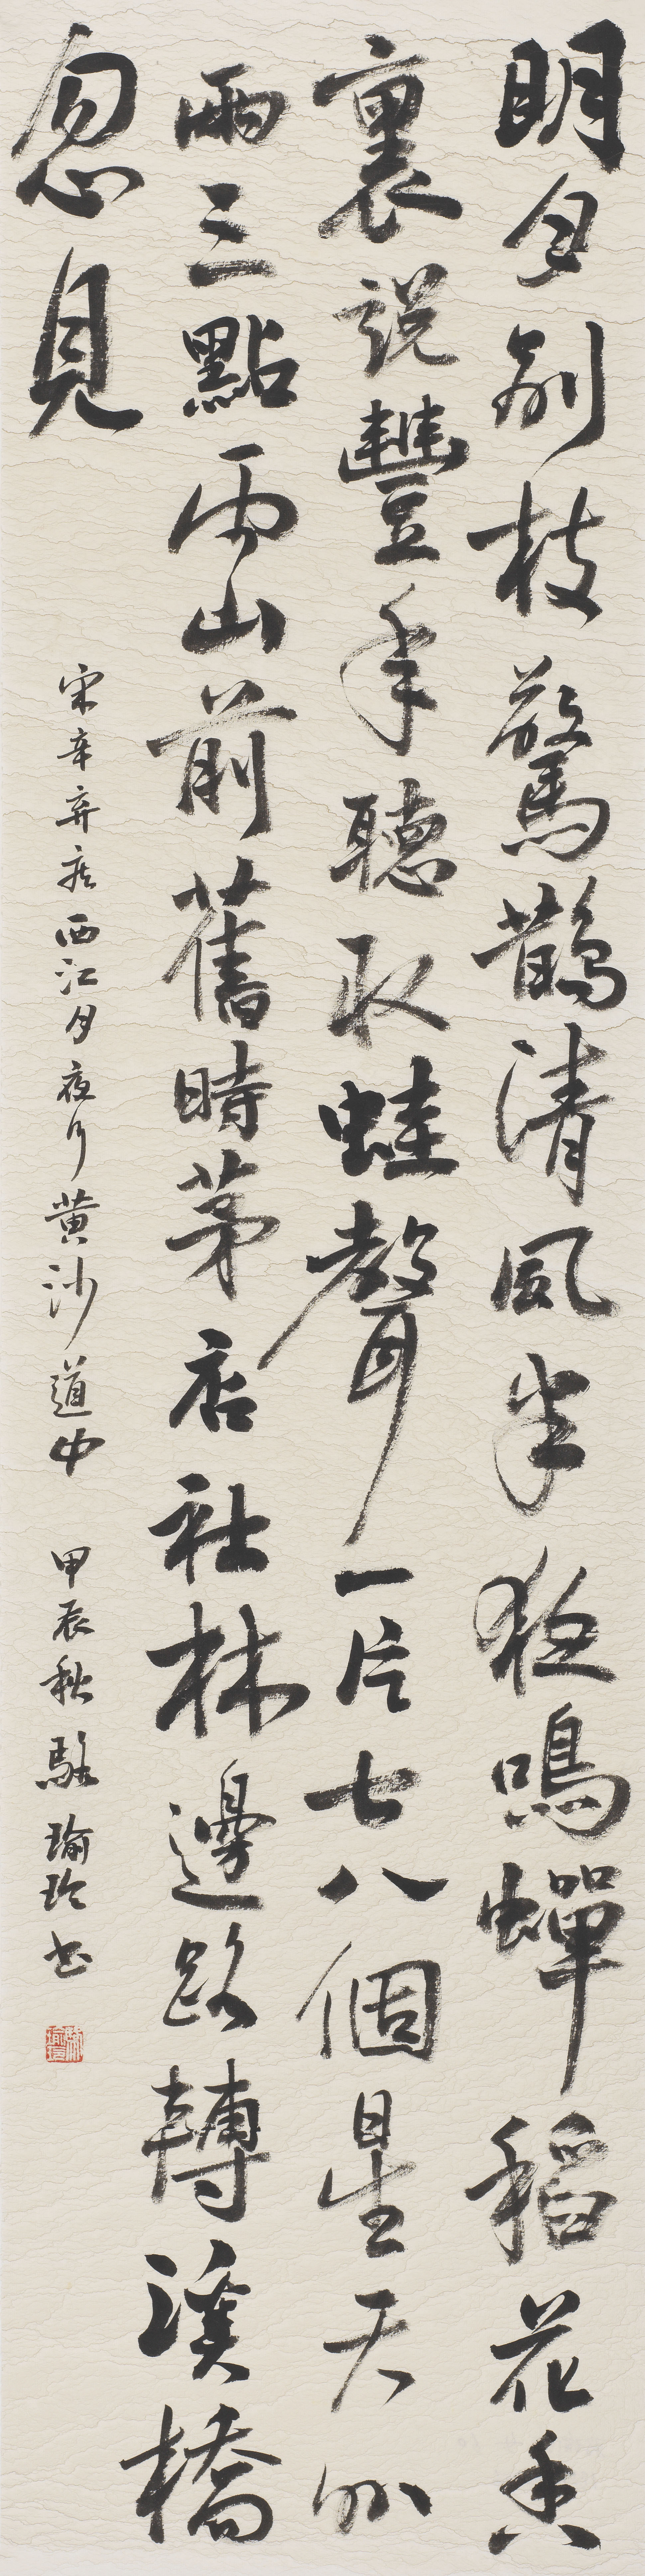 明月別枝驚鵲清風半夜鳴蟬稻花香
裏說豐年聽取蛙聲一片七八個星天外
兩三點雨山前舊時茅店社林邊路轉溪橋
忽見
宋辛弃疾西江月夜行黄沙道中 甲辰秋 駱瑜玲书